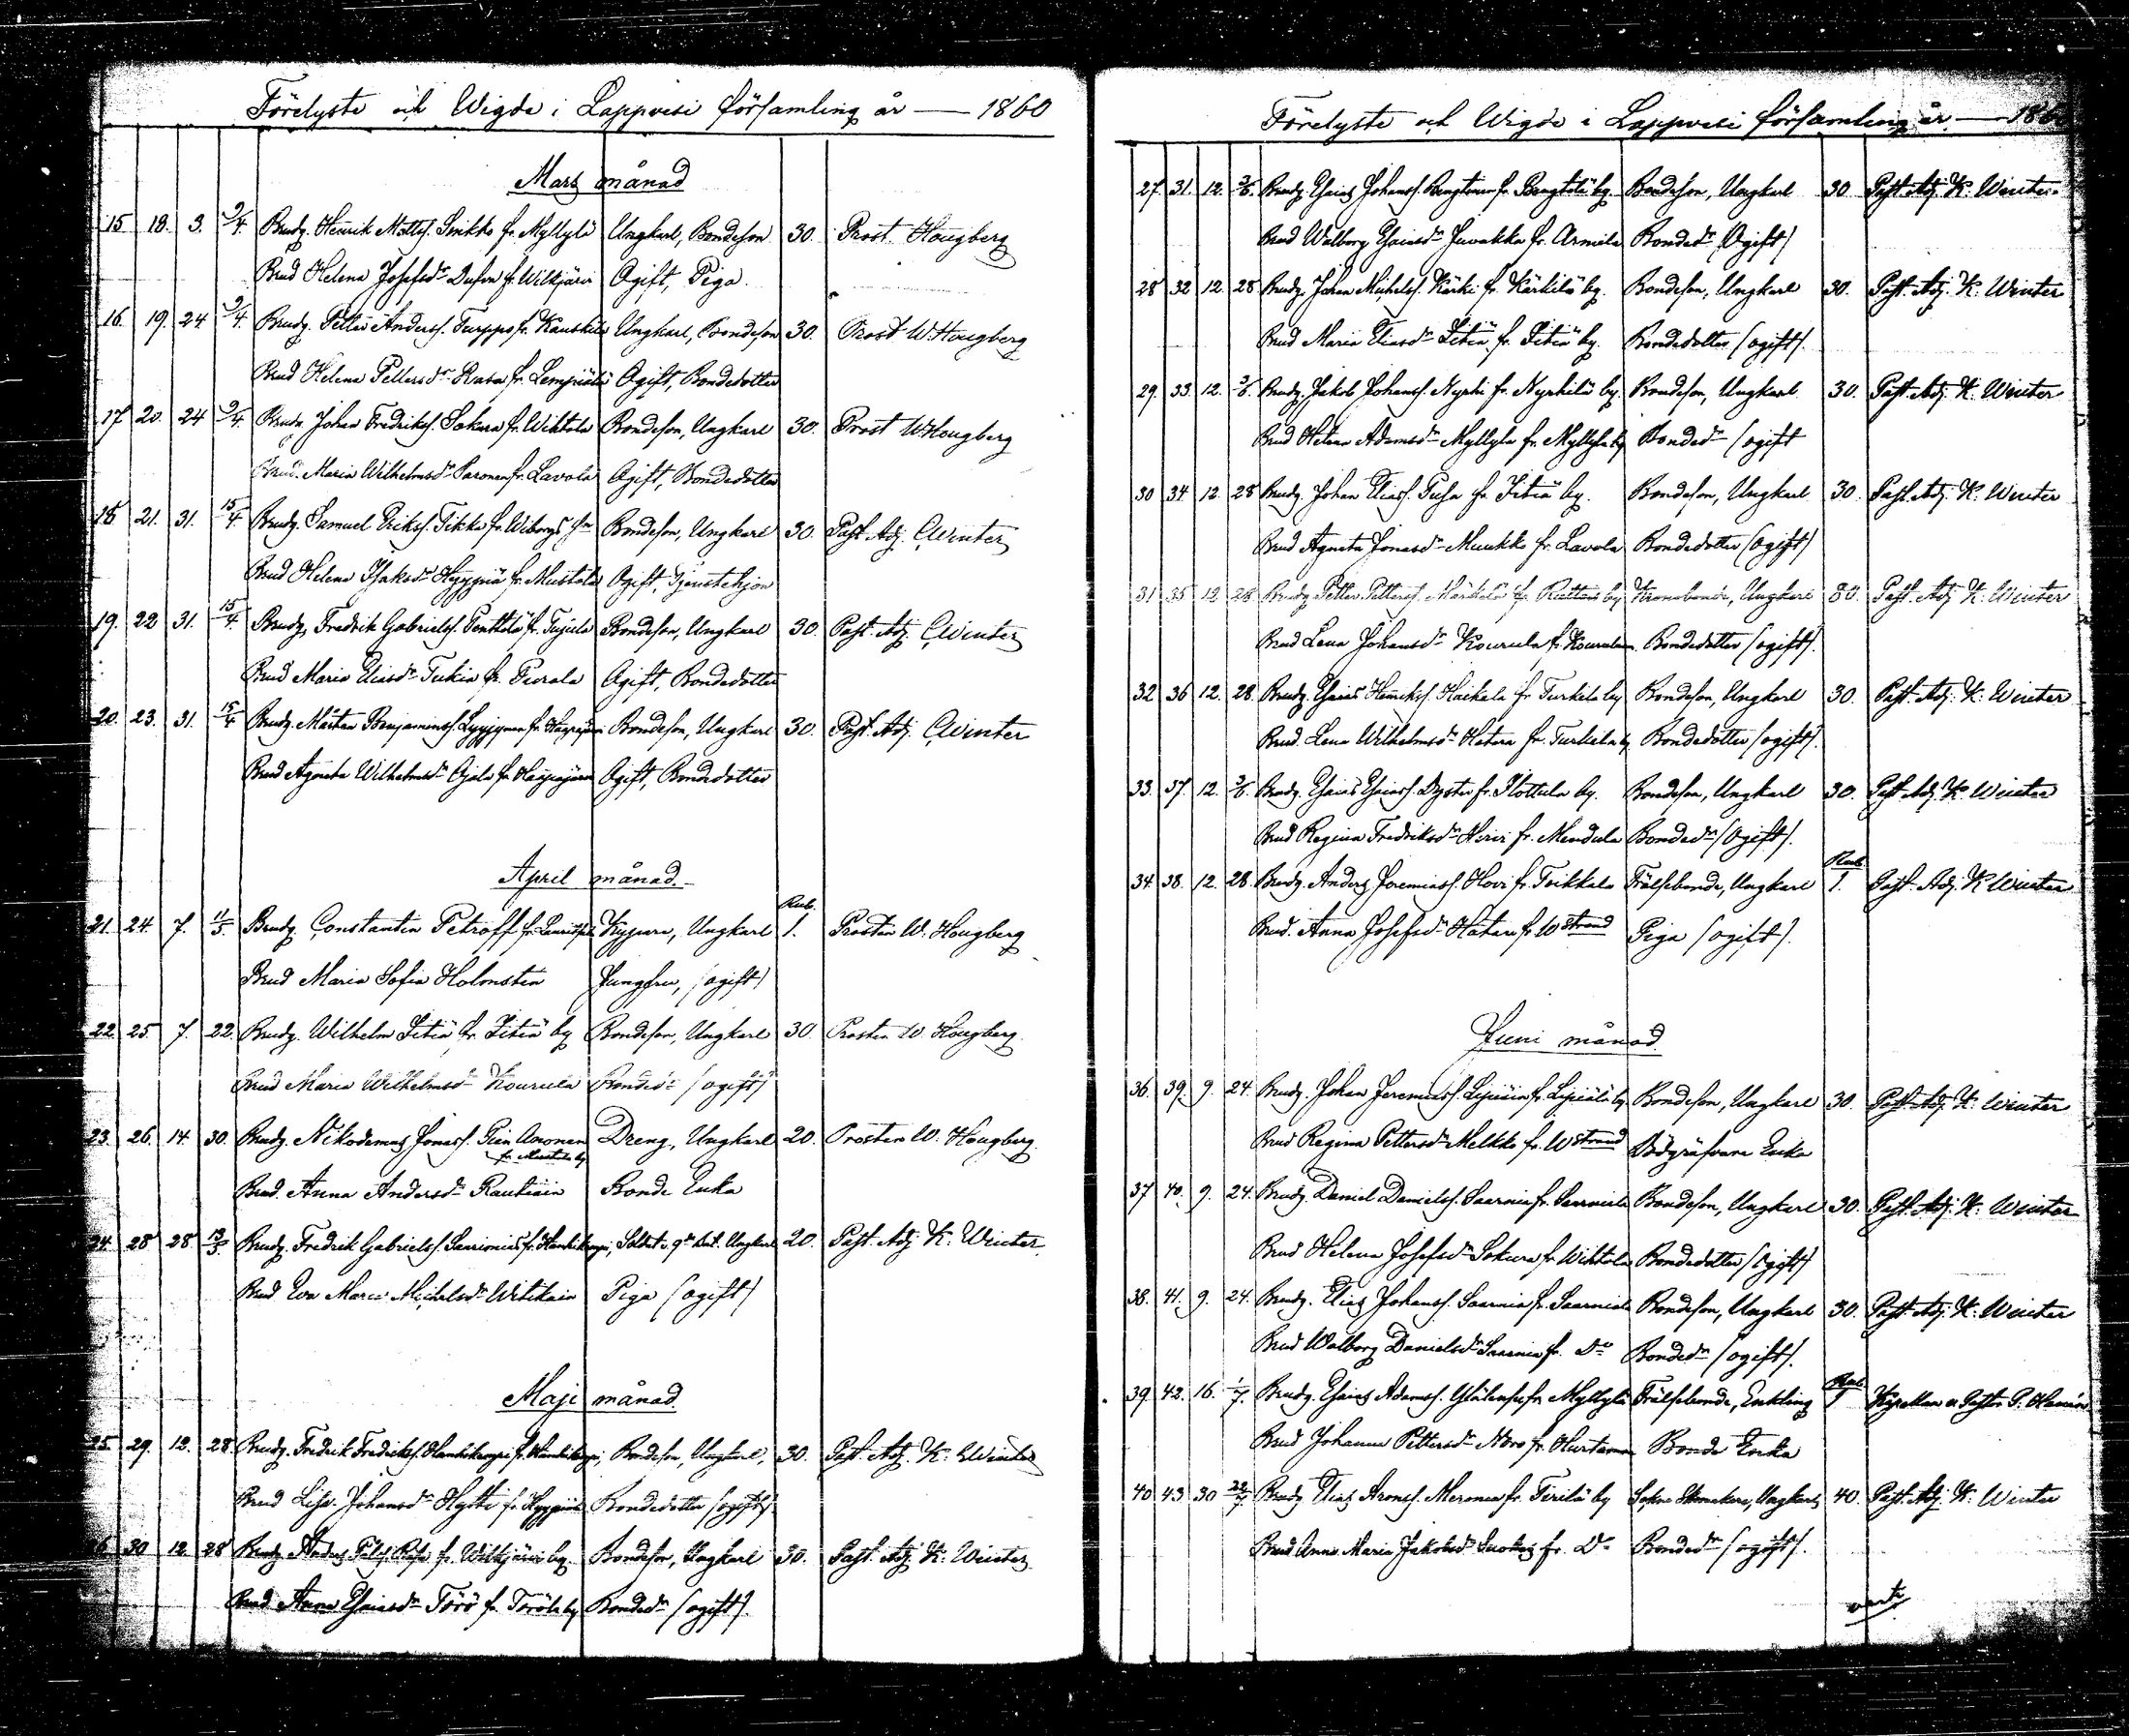 Förelyste och Wigde i Lappvesi församling år — 1860
Mars månad
15 18. 3. 9/4. Brudg. Henrik Mattss. Sinkko fr. Myllylä Ungkarl, Bondeson 30. Prost Hougberg
Brud Helena Josefsdr fr. Wilkjärvi Ogift, Piga.
16. 19. 24 9/4. Brudg. Petter Anderss. Turppo fr. Kauskila Ungkarl, Bondeson 30. Prost W. Hougberg
Brud Helena Pettersdr fr. Lempiälä Ogift, Bondedotter
17 20. 24 9/4. Brudg. Johan Fredrikss. Sokura fr. Wihtola Bondeson, Ungkarl 30. Prost W Hougberg
Brud. Maria Wilhelmsdr Saronen fr. Lavola Ogift, Bondedotter
18 21. 31. 15/4. Brudg. Samuel Erikss. Tikka fr. Wiborgs sn Bondeson, Ungkarl 30. Past. Adj. Winter
Brud Helena Isaksdr Hyyppiä fr. Mustola Ogift, Tjenstehjon
19. 22 31. 15/4. Brudg. Fredrik Gabrielss. Penttilä fr. Tujula Bondeson, Ungkarl 30. Past. Adj. Winter
Brud Maria Eliasdr Tukia fr. Purala Ogift, Bondedotter
20. 23. 31. 15/4 Brudg. Mårten Benjaminss. Lyyjynen fr. Bondeson, Ungkarl 30. Past. Adj. Winter
Brud Agneta Wilhelmsdr Ojala fr. Haapajärvi Ogift, Bondedotter
April månad.
21. 24. 7. 11/5. Brudg. Constantin Petroff fr. Kypare, Ungkarl Rub. 1. Prosten W. Hougberg
Brud Maria Sofia Holmsten Jungfru, (ogift)
22. 25. 7. 22. Brudg. Wilhelm Zitiä fr. Zitiä by Bondeson, Ungkarl 30 Prosten W. Hougberg.
Brud Maria Wilhelmsdr Kourula Bondedr (ogift)
23. 26. 14. 30. Brudg. Nikodemus Jonass. Anonen Dreng, Ungkarl 20. Prosten W. Hougberg.
fr. Mustola by
Brud. Anna Andersdr Rautiain Bonde Enka
24. 28 28 13/5. Brudg. Fredrik Gabrielss. fr. Hanhikempi, Soldat, Ungkarl 20. Past. Adj K. Winter.
Brud Eva Maria Michelsdr Witikain Piga (ogift)
Maji månad.
25. 29. 12. 28. Brudg. Fredrik Fredrikss. Hanhikempi fr. Hanhikempi, Bondeson, Ungkarl, 30. Past. Adj. K. Winter
Brud Lisa Johansdr Hytti fr. Hyyppiälä Bondedotter (ogift)
26. 30 12. 28 Brudg. Anders fr. Wilkjärvi by. Bondeson, Ungkarl 30. Past. Adj K. Winter
Brud Anna Esaiasdr Törö fr. Törölä by Bondedr (ogift).
Förelyste och Wigde i Lappvesi församling år — 186
27. 31. 12. 3/6. Brudg. Esaias Johanss. Bengtonen fr. Bengtilä by. Bondeson, Ungkarl 30 Past. Adj. K. Winter.
Brud Walborg Esaiasdr Juvakka fr. Armila Bondedr (Ogift)
28 32 12. 28 Brudg. Johan Michelss. Kärki fr. Kärkilä by. Bondeson, Ungkarl 30. Past. Adj. K. Winter
Brud Maria Eliasdr Zitiä fr. Zitiä by. Bondedotter (ogift).
29. 33. 12. 3/6. Brudg. Jakob Johanss. Nyrhi fr. Nyrhilä by. Bondeson, Ungkarl 30. Past. Adj. K. Winter
Brud Helena Adamsdr Myllylä fr. Myllylä by Bondedr (ogift
30 34 12. 28 Brudg. Johan Eliass. Pusa fr. Zitiä by. Bondeson, Ungkarl 30 Past. Adj. K. Winter
Brud Agneta Jonasdr Muukko fr. Lavola Bondedotter (Ogift)
31 35 12 28 Brudg. Petter Petterss. Märkälä fr. by Kronobonde, Ungkarl 30. Past. Adj K. Winter
Brud Lena Johansdr Kourula fr. Bondedotter (ogift).
32 36 12. 28. Brudg. Esaias Henrikss. Haikala fr. Turkila by Bondeson, Ungkarl 30. Past. Adj. K. Winter
Brud. Lena Wilhelmsdr Hatara fr. Turkila by Bondedotter (ogift).
33. 37. 12. 3/6. Brudg. Esaias Esaiass. Dyster fr. Ilottula by. Bondeson, Ungkarl 30. Past. Adj. K. Winter
Brud Regina Fredriksdr Hirvi fr. Mendula Bondedr (Ogift).
34. 38. 12. 28. Brudg. Anders Jeremiass. Hovi fr. Toikkala Frälsebonde, Ungkarl Rub. 1. Past. Adj. K. Winter
Brud. Anna Josefsdr Hatara fr. W strand Piga (ogift).
Juni månad.
36. 39. 9. 24. Brudg. Johan Jeremiass. Lipiäin fr. Lipiälä by. Bondeson, Ungkarl 30. Past. Adj. K. Winter
Brud Regina Pettersdr Melkko fr. W strand Enka
37 40. 9. 24. Brudg. Daniel Danielss. Saarnia fr. Saarniala Bondeson, Ungkarl 30. Past. Adj. K. Winter
Brud Helena Josefsdr Sokura fr. Wihtola Bondedotter (Ogift)
38. 41. 9. 24. Brudg. Elias Johanss. Saarnia fr. Saarniala Bondeson, Ungkarl 30. Past. Adj. K. Winter
Brud Walborg Danielsdr Saarnia fr. Do Bondedr (ogift).
39. 42. 16. 1/7. Brudg. Esaias Adamss. fr. Myllylä Frälsebonde, Enkling Rub. 1 Kapellan
Brud Johanna Pettersdr Noro fr. Hurtanmaa Bonde Enka
40 43 30 22/7 Brudg. Elias Aronss. Meronen fr. Tirilä by Sokne Skomakare, Ungkarl 40. Past. Adj. K. Winter
Brud Anna Maria Jakobsdr fr. Do Bondedr (ogift).